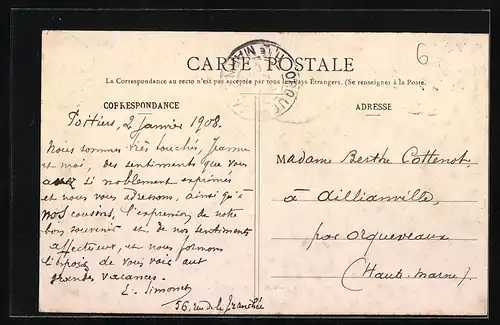 6
CARTE POSTALE
La Correspondance au recto n'est pas acceptée par tous les Pays Étrangers. (Se renseigner à la Poste.)
CORRESPONDANCE
ADRESSE
Poitiers, 2 Janvier 1908.
Nous sommes très touchés, Jeanne
et moi, des sentiments que vous
avez si noblement exprimés
et nous vous adressons, ainsi qu'à
nos cousins, l'expression de notre
bon souvenir et de nos sentiments
affectueux, et nous formons
l'espoir de vous voir aux
grandes vacances.
L. Simonet
56, rue de la Tranchée
Madame Berthe Cottenot,
à Aillianville,
par Orquevaux
(Haute-Marne)